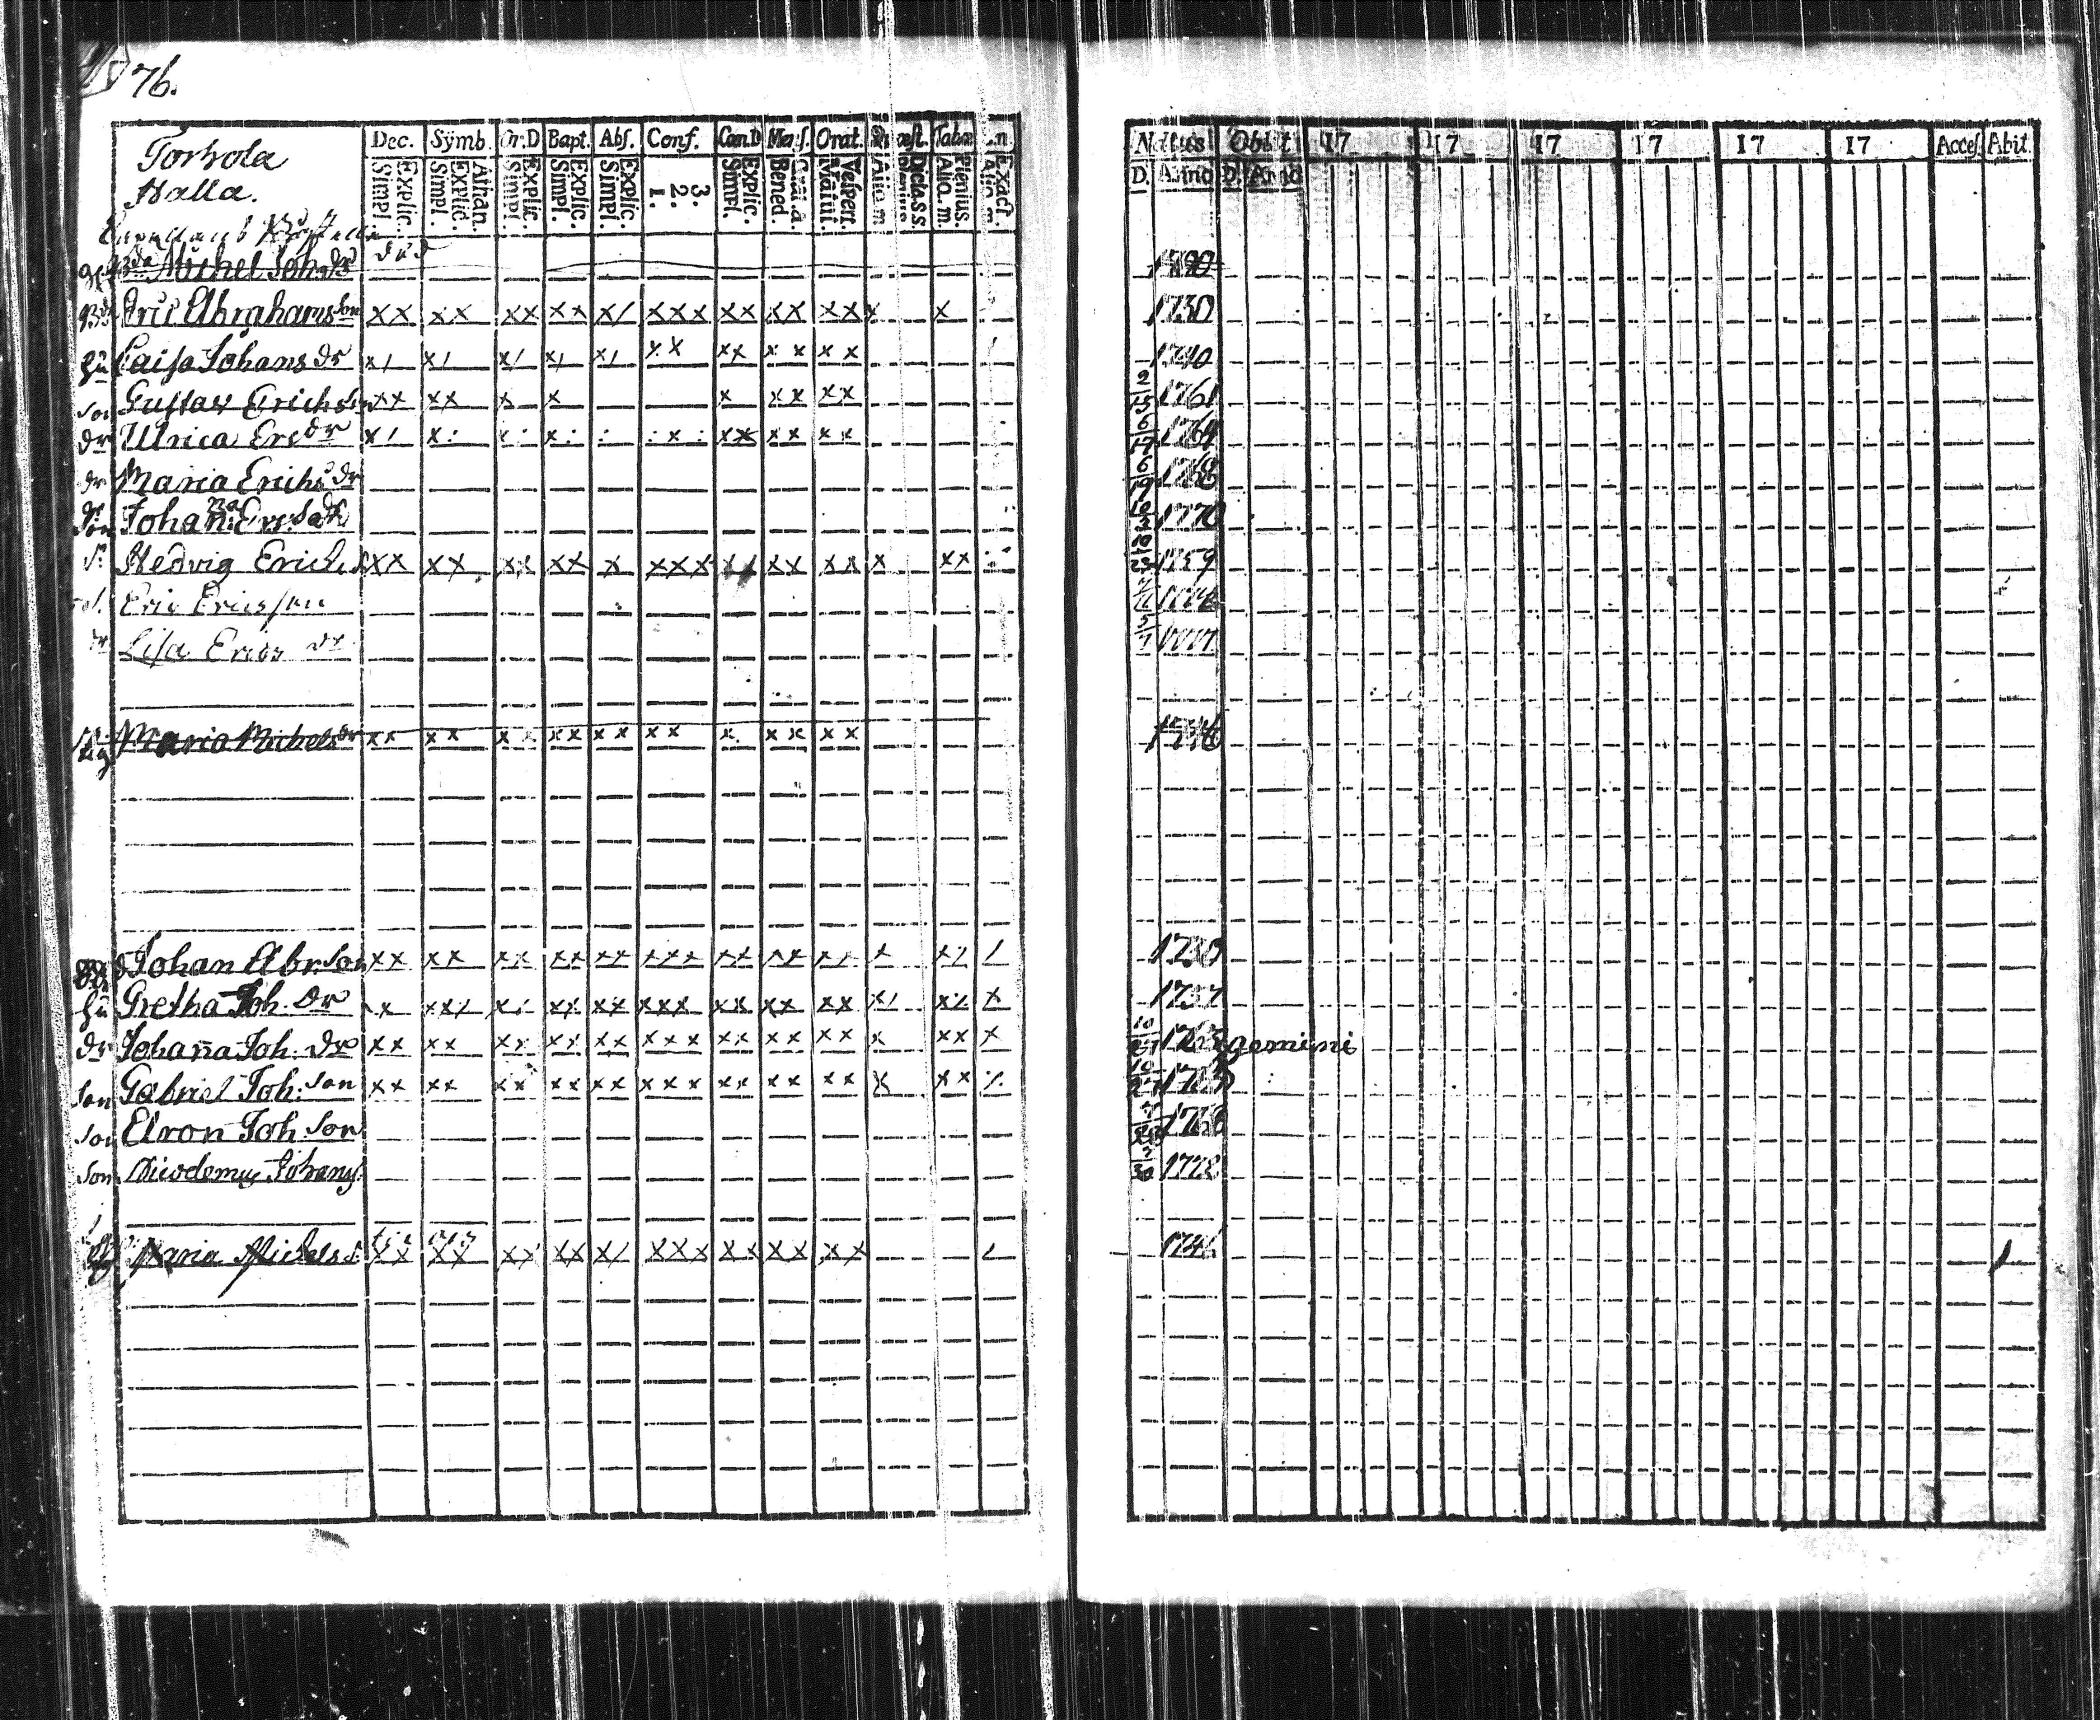 76.
Torhola
Halla.
Dec. Sÿmb. Or.D Bapt. Abs. Conf. Cœn.D Mens. Orat. Tabœ
Explic. Simpl. Athan. Explic. Simpl. Explic. Simpl. Explic. Simpl. Explic. Simpl. 3. 2. 1. Explic. Simpl. Grat. a. Bened. Vesper. Matut. Alia m. Dicta S.S. Plenius. Alia. m. Exact. Alia m.
Natus Obiit 17 17 17 17 17 17 Acces. Abit.
D. Anno D. Anno
Michel Joh dr död
Eric Abrahams son xx xx xx xx x/ xxx xx xx xxx x 1730
hu Caisa Johans dr x/ x/ x/ x/ x/ xx xx xx xx 1740
son Gustav Erichson xx xx x x x xx xx 2/15 1761
dr Ulrica Ers dr x/ x: x: x: : :x: xx xx xx 6/17 1764
dr Maria Erichs dr 6/19 1768
dr Johanna Ers dr 10/3 1770
Hedvig Erichs xx xx xx xx x xxx xx xx xx x xx 1759
Eric Ericsson
dr Lisa Erics dr 5/7
Maria Michels dr xx xx xx xx xx xx x xx xx 1746
Johan Abr. Son xx xx xx xx xx xxx xx xx xx x x/ / 1730
hu Gretha Joh. dr x xx/ x/ xx xx xxx xx xx xx x/ x/ x 1737
dr Johaña Joh. dr xx xx xx xx xx xxx xx xx xx x xx x 10/27 1763 gemini
son Gabriel Joh. son xx xx xx xx xx xxx xx xx xx x xx 10/27 1763
son Aron Joh. son 1768
son Nicodemus Johans 1778
Maria Michels d. xx xx xx xx x/ xxx xx xx xx / 1746